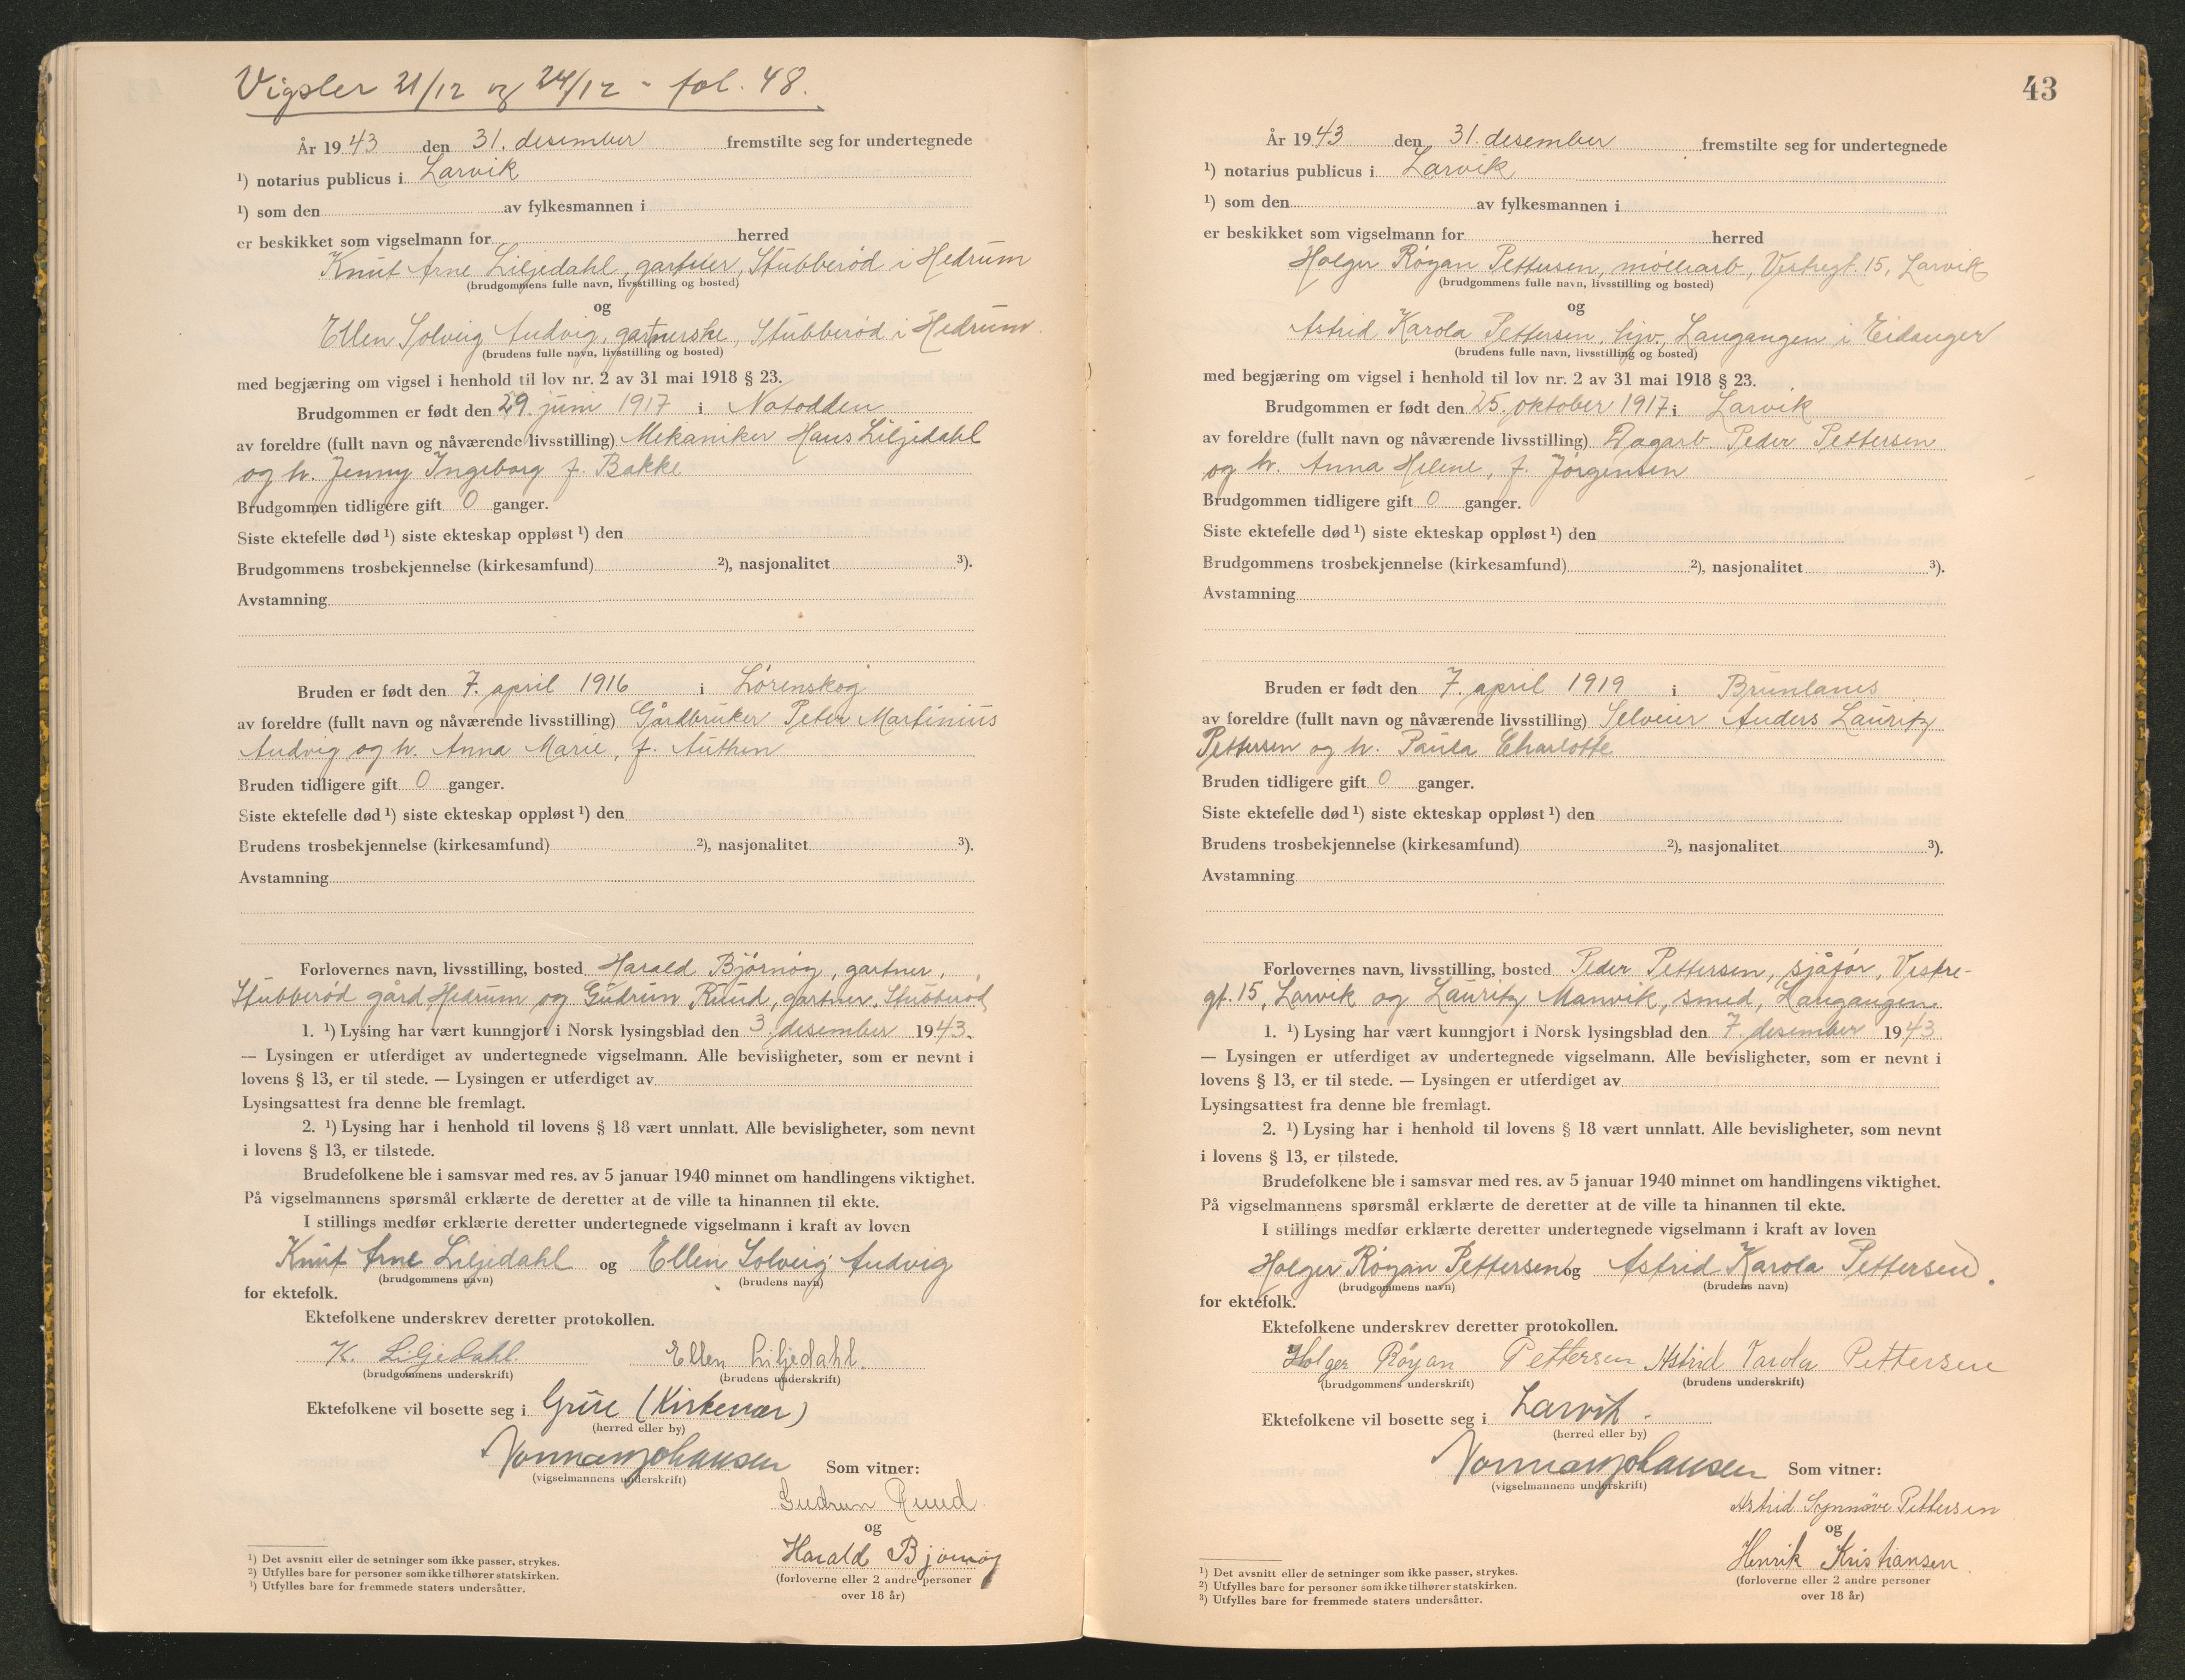 Vigsler 21/12 og 24/12 - fol. 48.
År 1943 den 31. desember fremstilte seg for undertegnede
¹) notarius publicus i Larvik
¹) som den av fylkesmannen i
er beskikket som vigselmann for herred
Knut Arne Liljedahl, gartner, Stubberød i Hedrum
(brudgommens fulle navn, livsstilling og bosted)
og
Ellen Solveig Audvig, gartnerske, Stubberød i Hedrum.
(brudens fulle navn, livsstilling og bosted)
med begjæring om vigsel i henhold til lov nr. 2 av 31 mai 1918 § 23.
Brudgommen er født den 29. juni 1917 i Notodden
av foreldre (fullt navn og nåværende livsstilling) Mekaniker Hans Liljedahl
og h. Jenny Ingeborg f. Bakke
Brudgommen tidligere gift 0 ganger.
Siste ektefelle død ¹) siste ekteskap oppløst ¹) den
Brudgommens trosbekjennelse (kirkesamfund) ²), nasjonalitet ³).
Avstamning
Bruden er født den 7. april 1916 i Lørenskog
av foreldre (fullt navn og nåværende livsstilling) Gårdbruker Peter Martinius
Audvig og h. Anna Marie, f. Authen
Bruden tidligere gift 0 ganger.
Siste ektefelle død ¹) siste ekteskap oppløst ¹) den
Brudens trosbekjennelse (kirkesamfund) ²), nasjonalitet ³).
Avstamning
Forlovernes navn, livsstilling, bosted Harald Bjørnøy, gartner,
Stubberød gård, Hedrum og Gudrun Ruud, gartner, Stubberød
1. ¹) Lysing har vært kunngjort i Norsk lysingsblad den 3. desember 1943.
— Lysingen er utferdiget av undertegnede vigselmann. Alle bevisligheter, som er nevnt i
lovens § 13, er til stede. — Lysingen er utferdiget av
Lysingsattest fra denne ble fremlagt.
2. ¹) Lysing har i henhold til lovens § 18 vært unnlatt. Alle bevisligheter, som nevnt
i lovens § 13, er tilstede.
Brudefolkene ble i samsvar med res. av 5 januar 1940 minnet om handlingens viktighet.
På vigselmannens spørsmål erklærte de deretter at de ville ta hinannen til ekte.
I stillings medfør erklærte deretter undertegnede vigselmann i kraft av loven
Knut Arne Liljedahl og Ellen Solveig Audvig
(brudgommens navn) (brudens navn)
for ektefolk.
Ektefolkene underskrev deretter protokollen.
K. Liljedahl Ellen Liljedahl.
(brudgommens underskrift) (brudens underskrift)
Ektefolkene vil bosette seg i Grue (Kirkenær)
(herred eller by)
Norman Johansen Som vitner:
(vigselmannens underskrift)
Gudrun Ruud
og
Harald Bjørnøy
(forloverne eller 2 andre personer
over 18 år)
¹) Det avsnitt eller de setninger som ikke passer, strykes.
²) Utfylles bare for personer som ikke tilhører statskirken.
³) Utfylles bare for fremmede staters undersåtter.
43
År 1943 den 31. desember fremstilte seg for undertegnede
¹) notarius publicus i Larvik
¹) som den av fylkesmannen i
er beskikket som vigselmann for herred
Holger Røyan Pettersen, møllearb, Vestregt. 15, Larvik
(brudgommens fulle navn, livsstilling og bosted)
og
Astrid Karola Pettersen, hjv., Langangen i Eidanger
(brudens fulle navn, livsstilling og bosted)
med begjæring om vigsel i henhold til lov nr. 2 av 31 mai 1918 § 23.
Brudgommen er født den 25. oktober 1917 i Larvik
av foreldre (fullt navn og nåværende livsstilling) Dagarb. Peder Pettersen
og h. Anna Helene, f. Jørgensen
Brudgommen tidligere gift 0 ganger.
Siste ektefelle død ¹) siste ekteskap oppløst ¹) den
Brudgommens trosbekjennelse (kirkesamfund) ²), nasjonalitet ³).
Avstamning
Bruden er født den 7. april 1919 i Brunlanes
av foreldre (fullt navn og nåværende livsstilling) Selveier Anders Lauritz
Pettersen og h. Paula Charlotte
Bruden tidligere gift 0 ganger.
Siste ektefelle død ¹) siste ekteskap oppløst ¹) den
Brudens trosbekjennelse (kirkesamfund) ²), nasjonalitet ³).
Avstamning
Forlovernes navn, livsstilling, bosted Peder Pettersen, sjåfør, Vestre-
gt. 15, Larvik og Lauritz Manvik, smed, Langangen.
1. ¹) Lysing har vært kunngjort i Norsk lysingsblad den 7. desember 1943
— Lysingen er utferdiget av undertegnede vigselmann. Alle bevisligheter, som er nevnt i
lovens § 13, er til stede. — Lysingen er utferdiget av
Lysingsattest fra denne ble fremlagt.
2. ¹) Lysing har i henhold til lovens § 18 vært unnlatt. Alle bevisligheter, som nevnt
i lovens § 13, er tilstede.
Brudefolkene ble i samsvar med res. av 5 januar 1940 minnet om handlingens viktighet.
På vigselmannens spørsmål erklærte de deretter at de ville ta hinannen til ekte.
I stillings medfør erklærte deretter undertegnede vigselmann i kraft av loven
Holger Røyan Pettersen og Astrid Karola Pettersen.
(brudgommens navn) (brudens navn)
for ektefolk.
Ektefolkene underskrev deretter protokollen.
Holger Røyan Pettersen Astrid Karola Pettersen
(brudgommens underskrift) (brudens underskrift)
Ektefolkene vil bosette seg i Larvik.
(herred eller by)
Norman Johansen Som vitner:
(vigselmannens underskrift)
Astrid Synnøve Pettersen
og
Henrik Kristiansen
(forloverne eller 2 andre personer
over 18 år)
¹) Det avsnitt eller de setninger som ikke passer, strykes.
²) Utfylles bare for personer som ikke tilhører statskirken.
³) Utfylles bare for fremmede staters undersåtter.